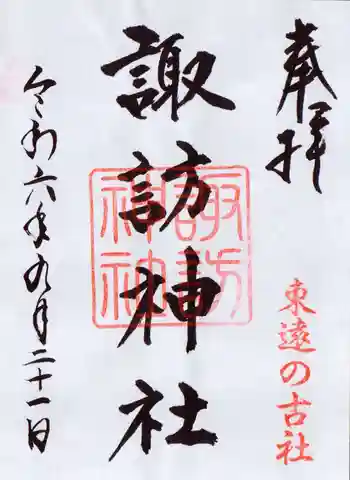 奉拝
東遠の古社
諏訪神社
諏訪
神社
令和六年九月二十一日